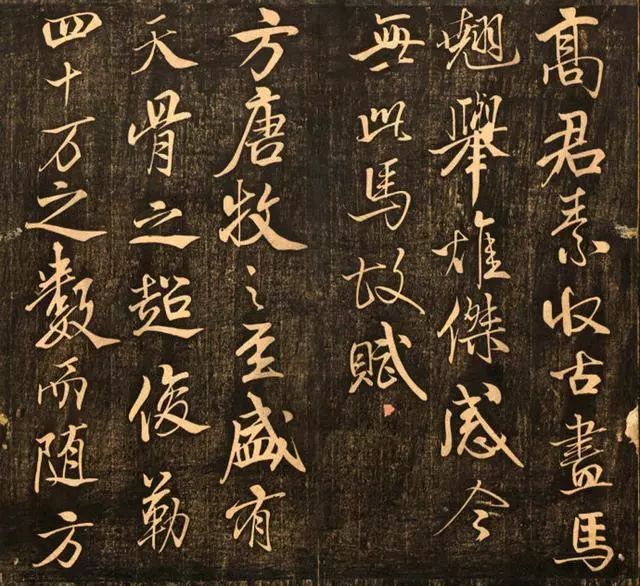 高君素收古畫馬
翹舉雄傑感今
無此馬故賦
方唐牧之至盛有
天骨之超俊勒
四十万之數而随方